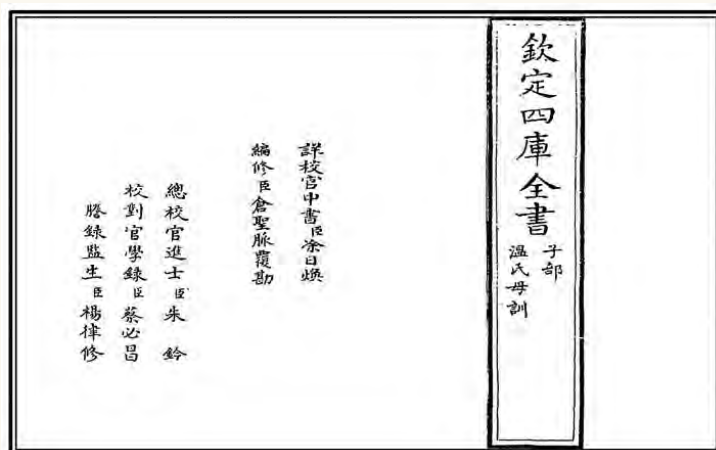 欽定四庫全書
子部
溫氏母訓
詳校官中書臣涂日煥
編修臣倉聖脈覆勘
總校官進士臣朱鈐
校對官學錄臣蔡必昌
謄錄監生臣楊修